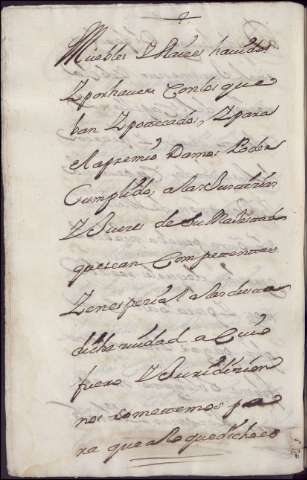 Muebles Y Raices havidos
Y por haver Con los que
ban Y poteecado, Y para
el apremio Damos Poder
Cumplido, a las Jurisdizion
Y Jueces de Su Magestad
que sean Competentes
Y en especial a los de esta
dicha ciudad a Cuio
fuero Y Jurisdizion
nos sometemos pa
ra que a lo que dicho es